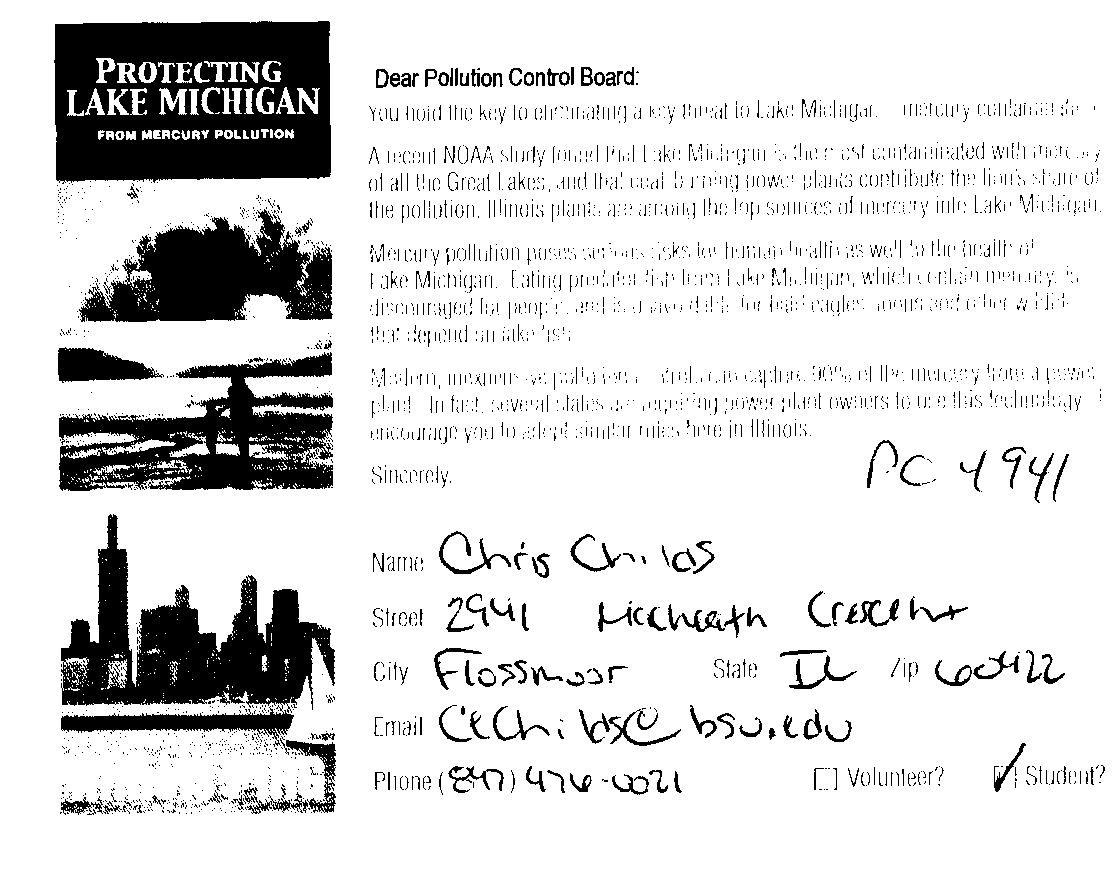 PROTECTING
LAKE MICHIGAN
FROM MERCURY POLLUTION
Dear Pollution Control Board:
You hold the key to eliminating a key threat to Lake Michigan mercury
A recent NOAA study found that Lake Michigan is the most contaminated with mercury
of all the Great Lakes, and that coal-burning power plants contribute the lion's share of
the pollution. Illinois plants are among the top sources of mercury into Lake Michigan.
Mercury pollution poses serious risks for human health as well to the health of
Lake Michigan. Eating predator fish from Lake Michigan, which contain mercury, is
discouraged for people, and is unavoidable for bald eagles, loons and other
that depend on lake fish
Modern, inexpensive pollution controls can capture 90% of the mercury from a power
plant. In fact, several states are requiring power plant owners to use this technology. I
encourage you to adopt similar rules here in Illinois.
Sincerely,
PC 4941
Name Chris Childs
Street 2941 Crescent
City Flossmoor State IL Zip 60422
Email CEChilds@bsu.edu
Phone (847) 476-0021 Volunteer? Student?